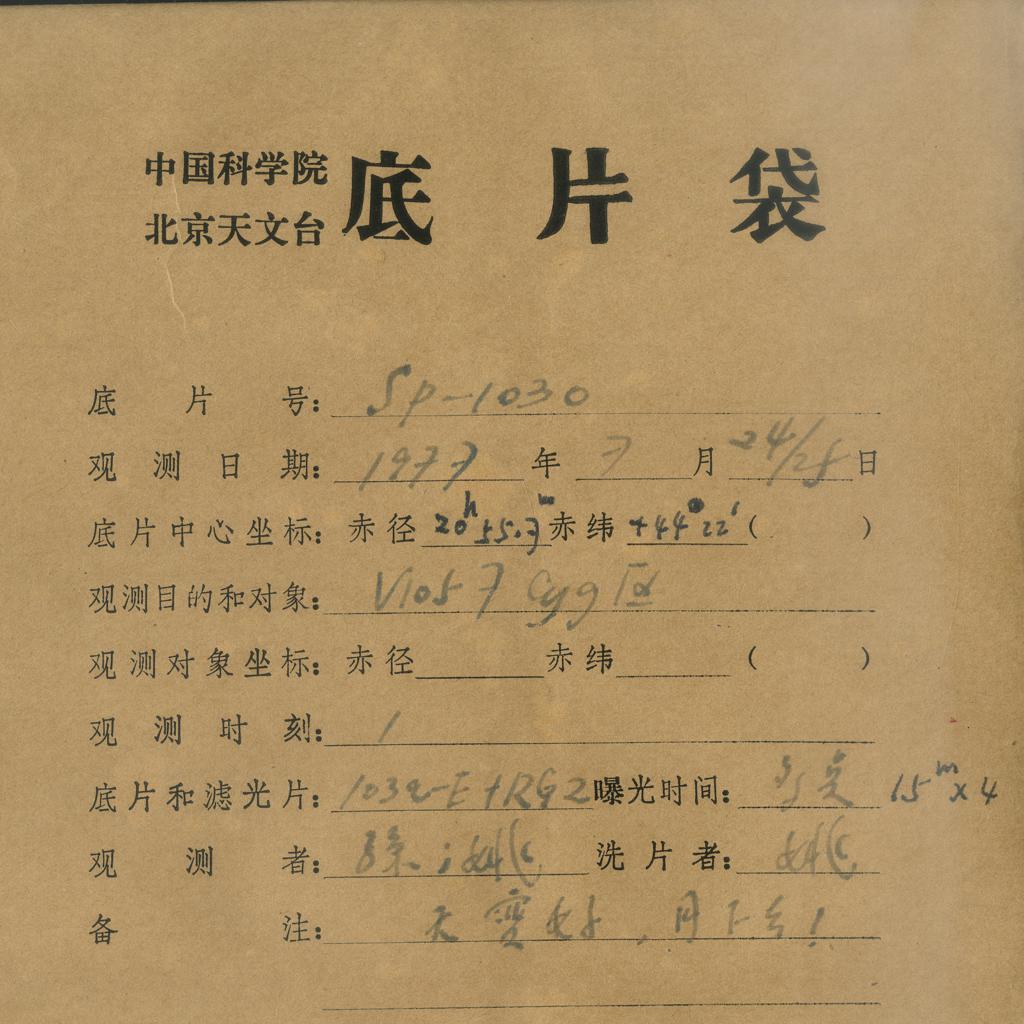 中国科学院
北京天文台
底片袋
底片号：Sp-1030
观测日期：1977年7月24/25日
底片中心坐标：赤径 20h55.7m 赤纬 +44°22′（ ）
观测目的和对象：V1057 Cyg 区
观测对象坐标：赤径 赤纬 （ ）
观测时刻：1
底片和滤光片：103a-E+RG2 曝光时间：多 15m×4
观测者：孙；姚 洗片者：姚
备注：天 好，月下